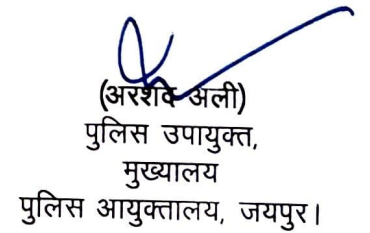 (अरशद अली)
पुलिस उपायुक्त,
मुख्यालय
पुलिस आयुक्तालय, जयपुर।